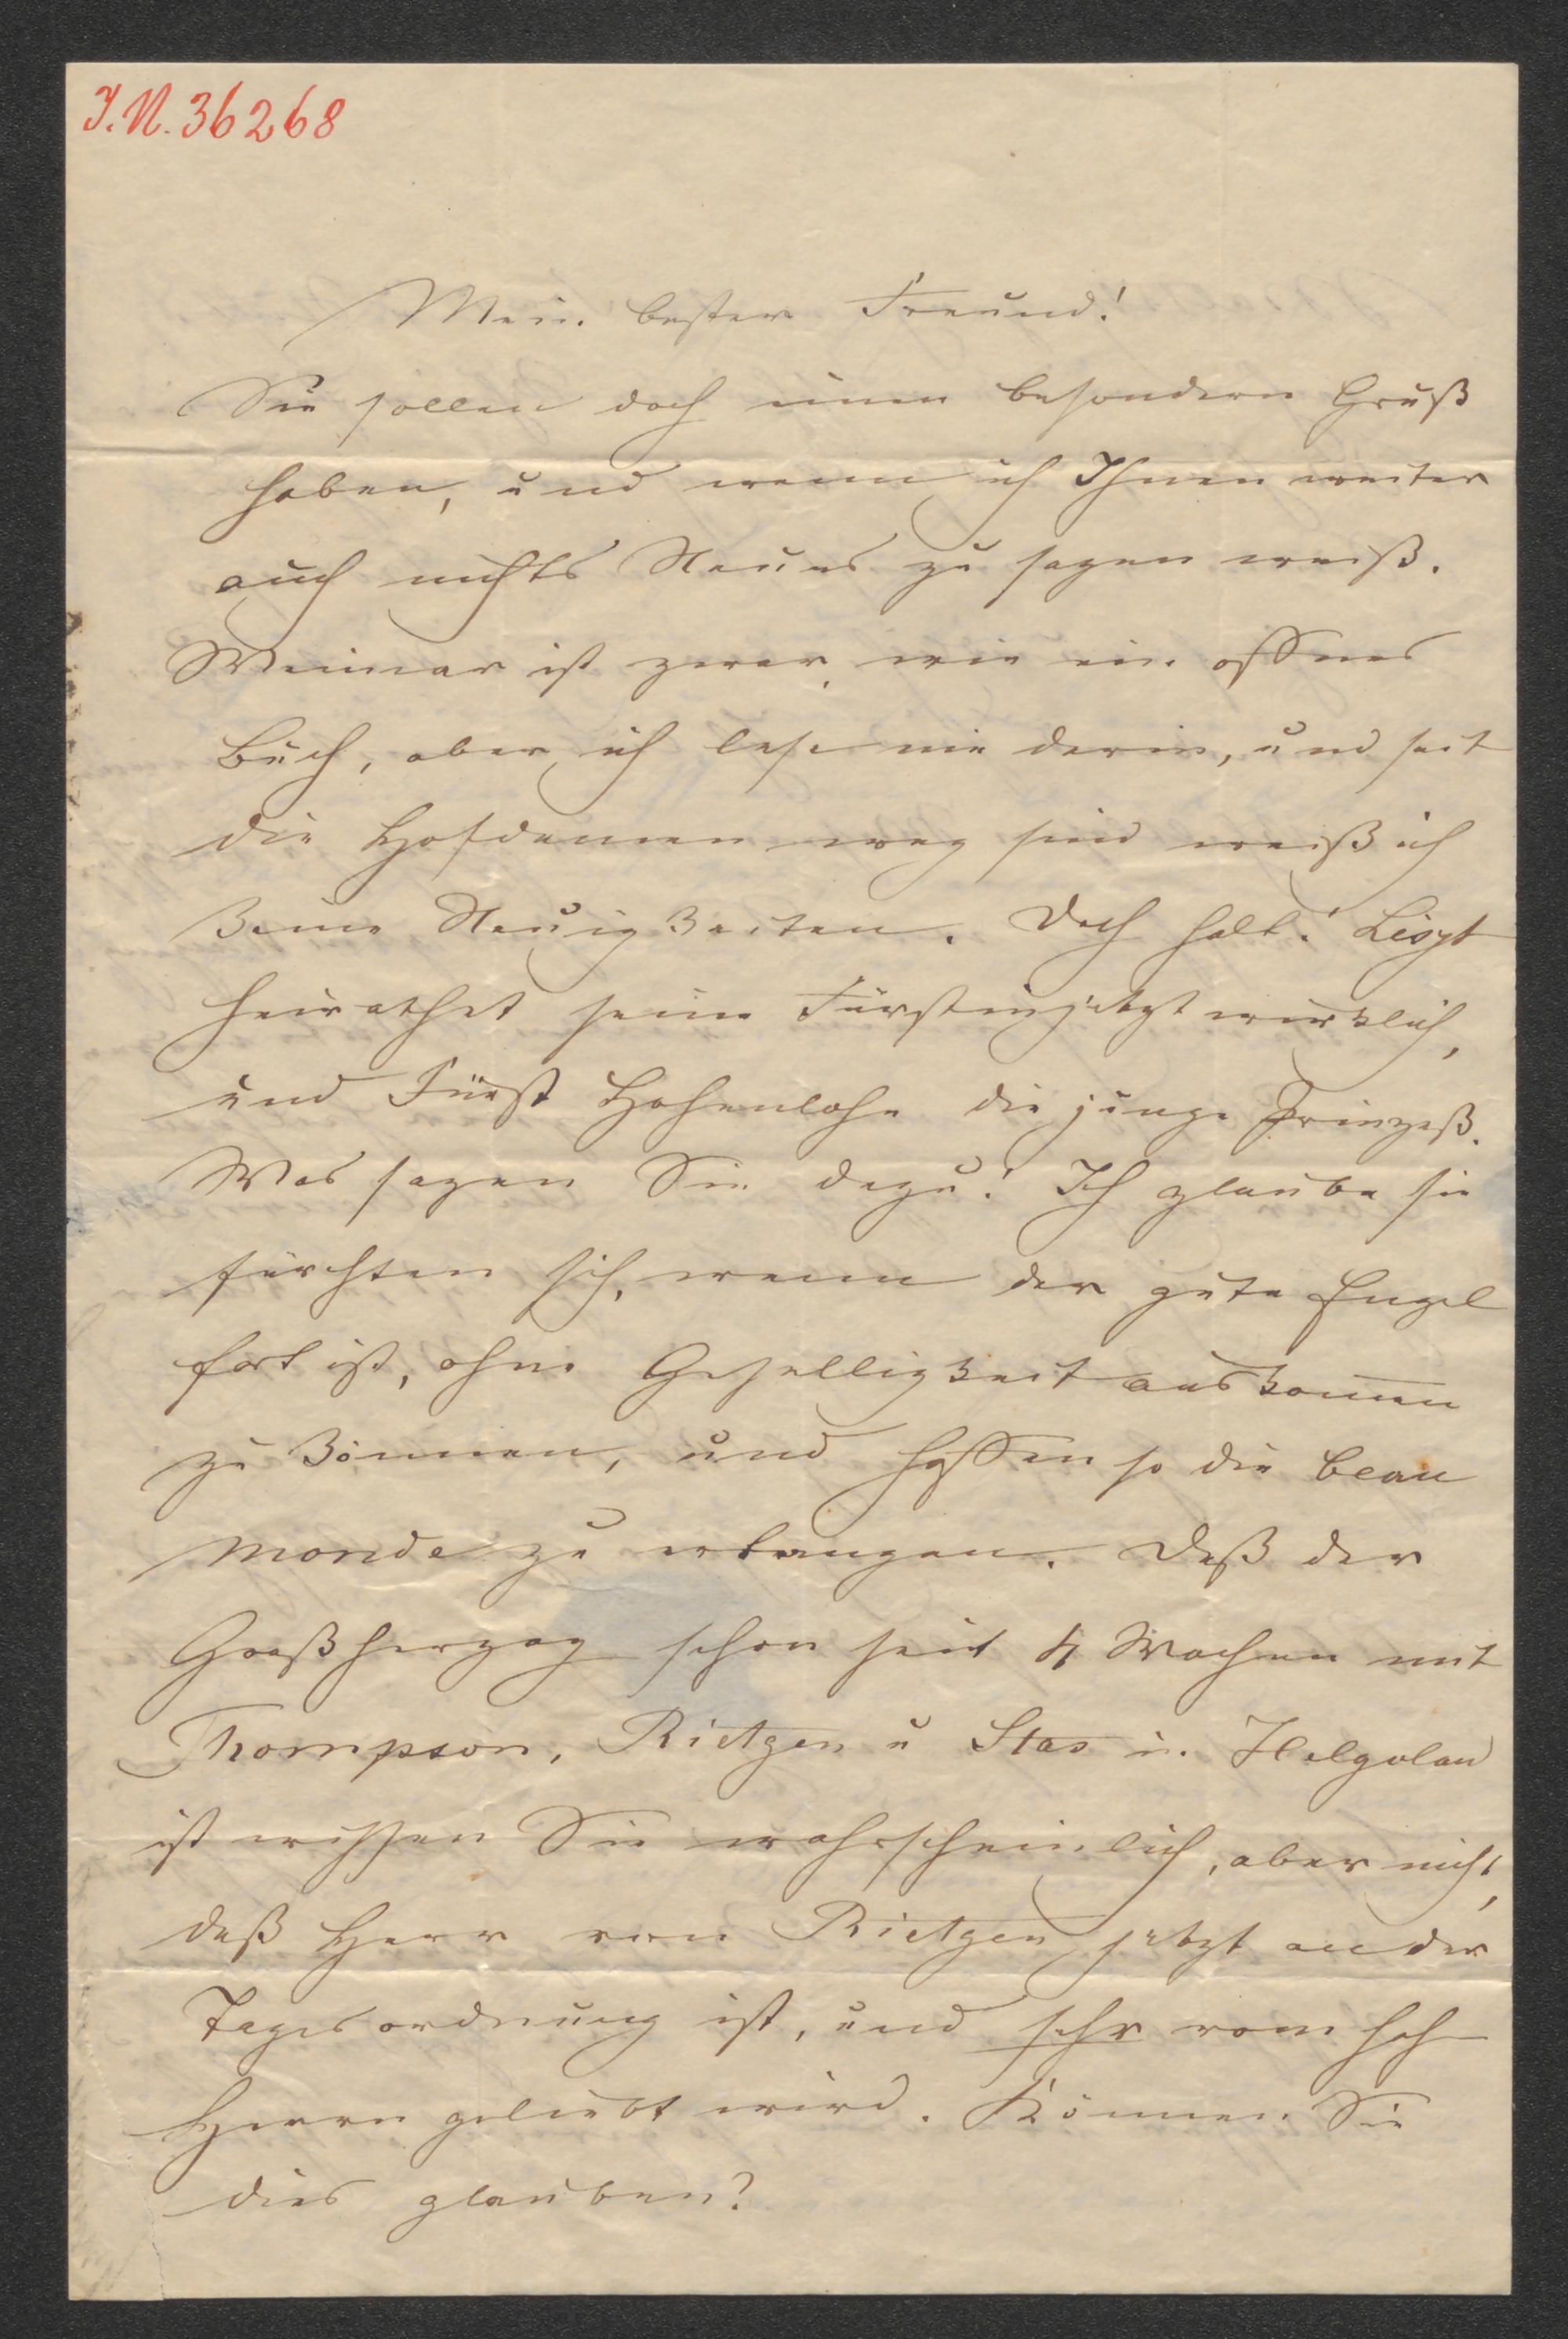 I.N. 36268
Mein bester Freund!
Sie sollen doch einen besondern Gruß
haben, und wenn ich Ihnen weiter
auch nichts Neues zu sagen weiß.
Weimar ist zwar, wie ein offnes
Buch, aber ich lese nie darin, und seit
die Hofdamen weg sind weiß ich
keine Neuigkeiten. Doch halt! Liszt
heirathet seine Fürstin jetzt wirklich,
und Fürst Hohenlohe die junge Prinzeß.
Was sagen Sie dazu! Ich glaube sie
fürchten sich, wenn der gute Engel
fort ist, ohne Geselligkeit auskom̅en
zu können, und hoffen so die beau
monde zu erlangen. Daß der
Großherzog schon seit 4 Wochen mit
Thompson, Rietgen u Stas in Helgoland
ist wissen Sie wahrscheinlich, aber nicht,
daß Herr von Rietgen jetzt an der
Tagesordnung ist, und sehr vom hoh
Herrn geliebt wird. Können Sie
dies glauben?